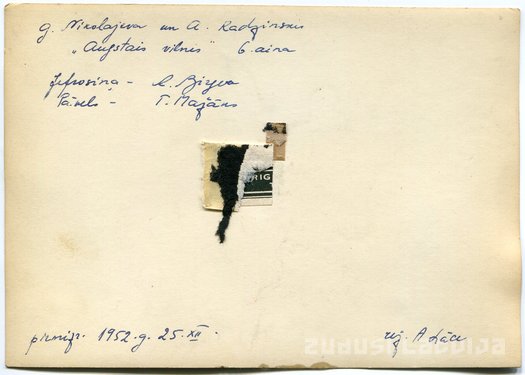 G. Nikolajeva un A. Radzinskis
„Augstais vilnis" 6. aina
Jefrosiņa – A. Birzva
Pāvels – T. Mažāns
RIG
pirmizr. 1952. g. 25. XII.
rež. A. Lācе
zudusilatvija